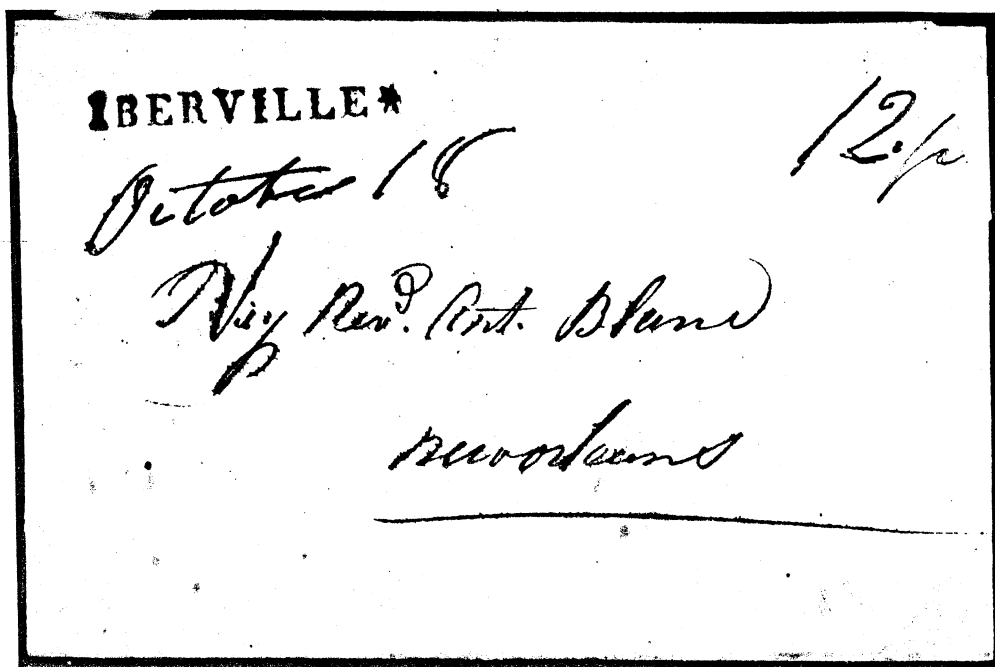 IBERVILLE*
October 18
12½
Very Revd. Ant. Blanc
neworleans